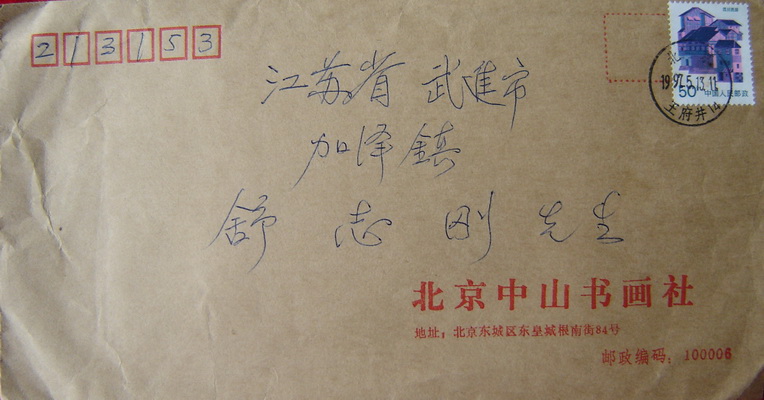 213153
北
1997.5.13.11
王府井14
50 中国人民邮政
江苏省 武進市
加泽鎮
舒 志 刚 先生
北京中山书画社
地址：北京东城区东皇城根南街84号
邮政编码：100006